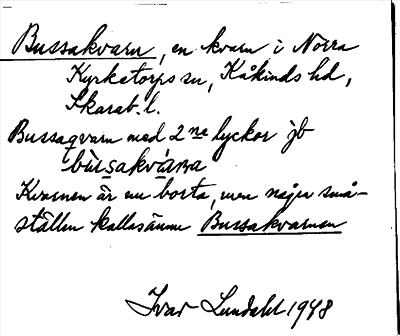 Bussakvarn, en kvarn i Norra
Kyrketorps sn, Kåkinds hd,
Skarab. l.
Bussaqvarn med 2ne lyckor jb
bùs̱akvána
Kvarnen är nu borta, men några små-
ställen kallas ännu Bussakvarnen
Ivar Lundahl 1948